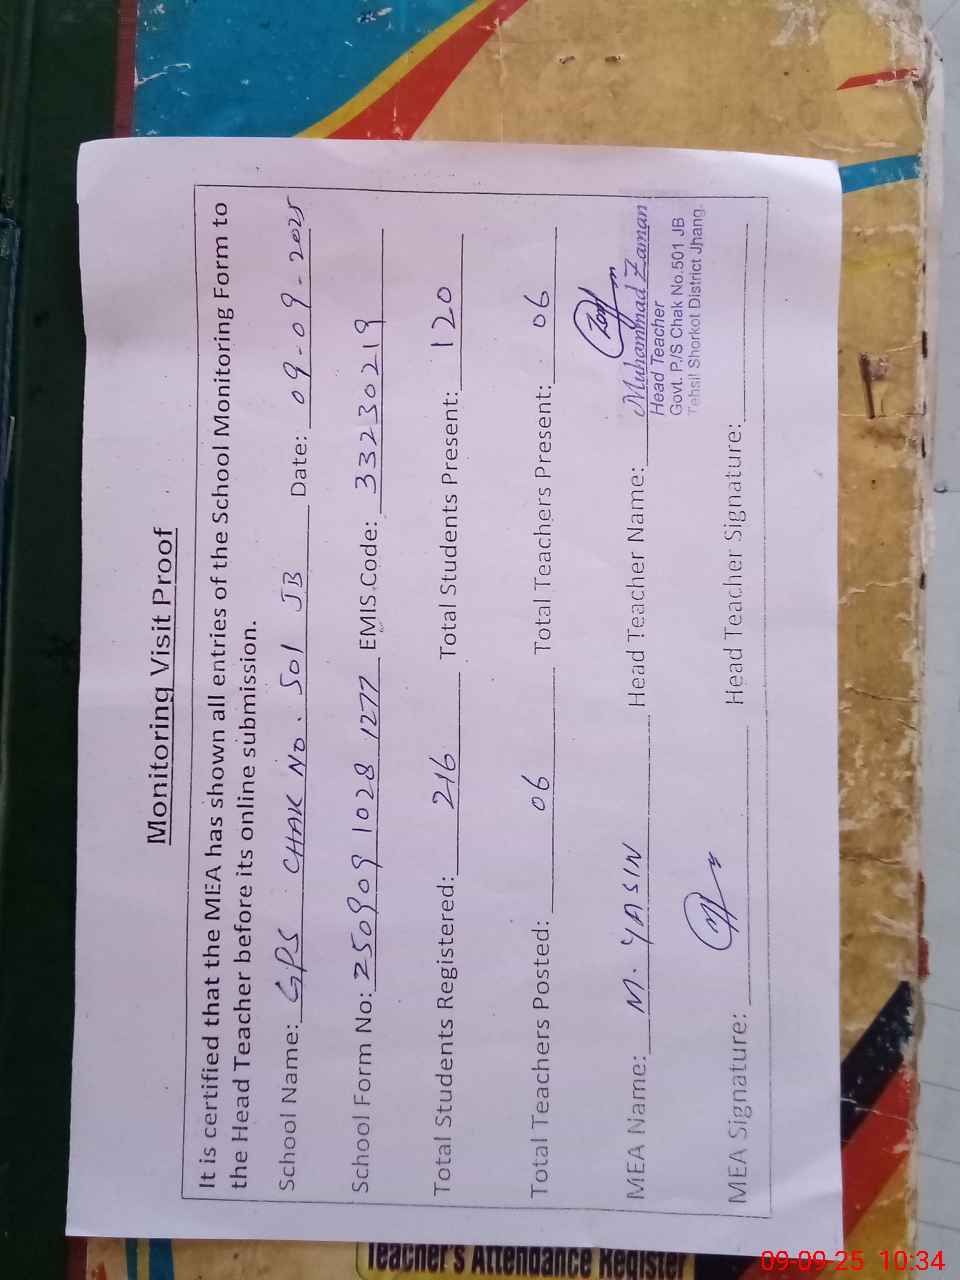 Monitoring Visit Proof
It is certified that the MEA has shown all entries of the School Monitoring Form to
the Head Teacher before its online submission.
School Name: GPS CHAK NO. 501 JB Date: 09-09-2025
School Form No: 250909 1028 1277 EMIS Code: 33230219
Total Students Registered: 216 Total Students Present: 120
Total Teachers Posted: 06 Total Teachers Present: 06
MEA Name: M. YASIN Head Teacher Name: Muhammad Zaman
Head Teacher
Govt. P/S Chak No.501 JB
Tehsil Shorkot District Jhang.
MEA Signature: Head Teacher Signature:
Teacher's Attendance Register
09-09-25 10:34